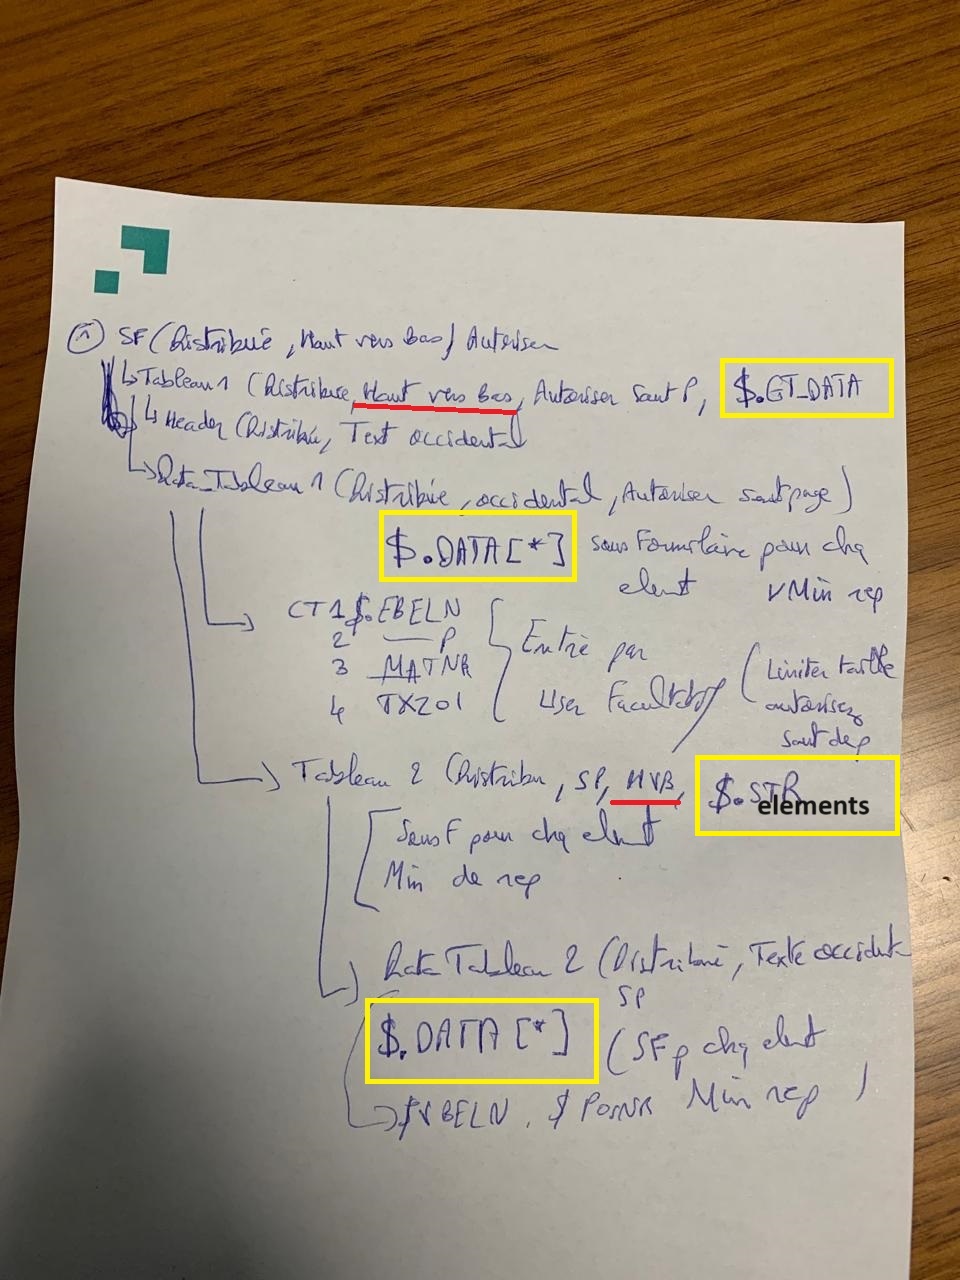 ① SF (Distribué, Haut vers Bas) Autoriser
↳ Tableau 1 (Distribué, Haut vers Bas, Autoriser saut P, $.GT_DATA
↳ Header (Distribué, Text occidental
Data_Tableau 1 (Distribuée, occidental, Autoriser saut page)
$.DATA[*] sous Formulaire pour chq
elemt vMin rep
CT 1 $.EBELN
2 — P
3 MATNR
4 TXZ01
Entrée par
User Facultatif
(Limiter taille
autoriser
saut de p
Tableau 2 (Distribu, SP, HVB, $.STR
elements
Sous F pour chq elemt
Min de rep
Data Tableau 2 (Distribué, Texte occident
SP
$.DATA[*] (SF p chq elemt
$VBELN, $ POSNR Min rep)